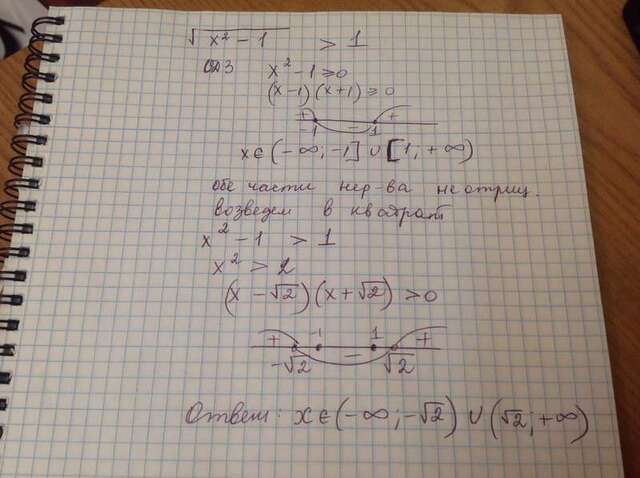 √x² - 1 > 1
ОДЗ x² - 1 ≥ 0
(x - 1)(x + 1) ≥ 0
+ - +
-1 1
x ∈ (-∞; -1] ∪ [1; +∞)
обе части нер-ва неотриц.
возведем в квадрат
x² - 1 > 1
x² > 2
(x - √2)(x + √2) > 0
+ -1 - 1 +
-√2 √2
Ответ: x ∈ (-∞; -√2) ∪ (√2; +∞)